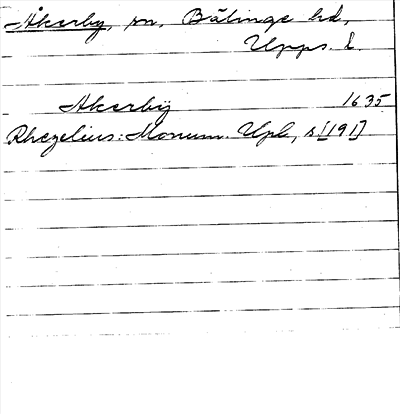 Åkerby, sn, Bälinge hd,
Upps. l.
Akerbÿ 1635
Rhezelius: Monum. Upl, s [191]